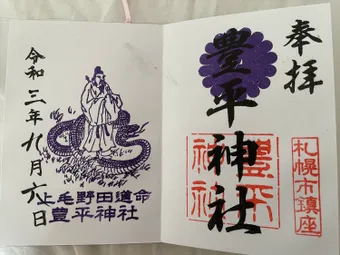 奉拝
豊平神社
豊平
神社
札幌市鎮座
令和三年九月六日
上毛野田道命
豊平神社